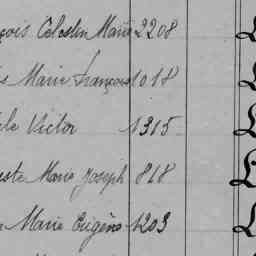 çois Célestin Marie 2208
s Marie François 1018
le Victor 1315
uste Marie Joseph 818
Marie Eugène 1203